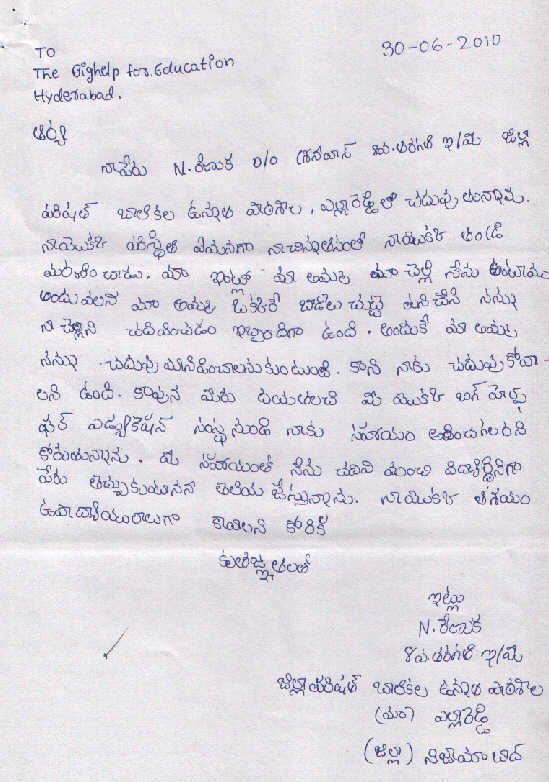 30-06-2010
TO
The Bighelp for Education
Hyderabad.
ఆర్య
నాపేరు N. రేణుక D/O శ్రీనివాస్ 8వ.తరగతి ఇ/మీ జిల్లా
పరిషత్ బాలికల ఉన్నత పాఠశాల, ఎల్లారెడ్డిలో చదువుతున్నాను.
నాయొక్క పరిస్థితి ఏమనగా నా చిన్నతనంలో నాయొక్క తండ్రి
మరణించాడు. మా ఇంట్లో మా అమ్మ మా చెల్లి నేను ఉంటాము
అందువలన మా అమ్మ ఒక్కతే బీడీలు చుట్టె పని చేసి నన్ను
నా చెల్లిని చదివించడం ఇబ్బందిగా ఉంది. అందుకే మా అమ్మ
నన్ను చదువు మానిపించాలనుకుంటుంది. కాని నాకు చదువుకోవా-
లని ఉంది. కావున మీరు దయతలచి మీ యొక్క బిగ్ హెల్ప్
ఫర్ ఎడ్యుకేషన్ సంస్థ నుండి నాకు సహాయం అందించగలరని
కోరుచున్నాను. మీ సహాయంతో నేను చదివి మంచి విద్యార్థినిగా
పేరు తెచ్చుకుంటానని తెలియ చేస్తున్నాను. నాయొక్క ఆశయం
ఉపాధ్యాయురాలుగా కావాలని కోరిక
కృతజ్ఞతలతో
ఇట్లు
N. రేణుక
8వ.తరగతి ఇ/మీ
జిల్లాపరిషత్ బాలికల ఉన్నత పాఠశాల
(మం) ఎల్లారెడ్డి
(జిల్లా) నిజామాబాద్